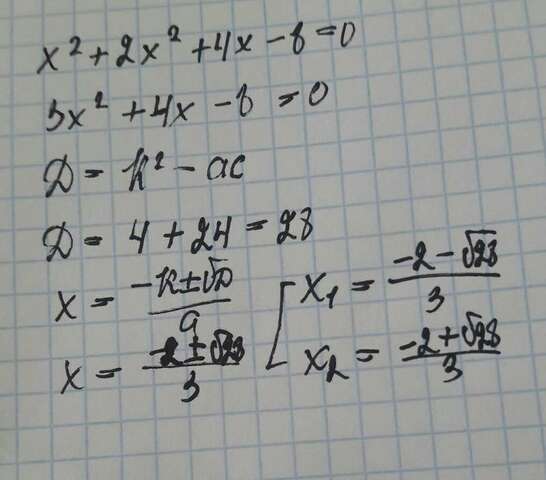 x² + 2x² + 4x - 8 = 0
3x² + 4x - 8 = 0
D = k² - ac
D = 4 + 24 = 28
x = (-k±√D)/a
x = (-2±√28)/3
[ x₁ = (-2-√28)/3
x₂ = (-2+√28)/3